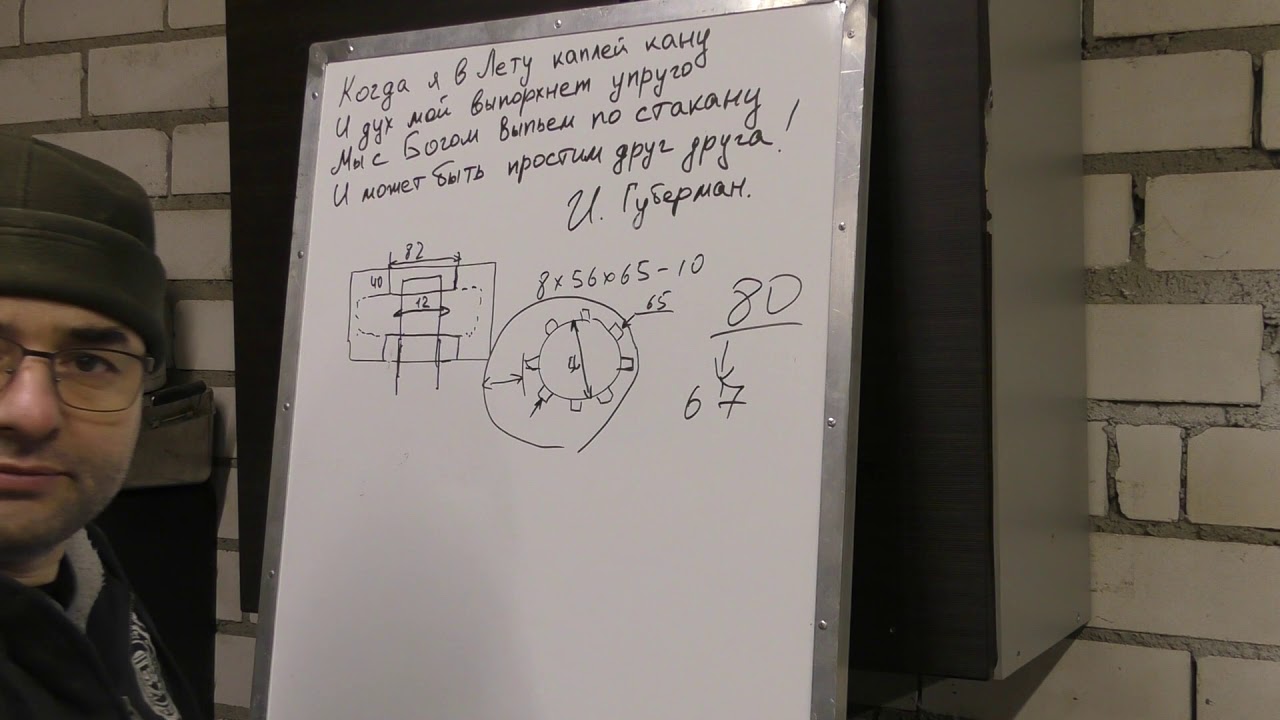 Когда я в Лету каплей кану
И дух мой выпорхнет упруго
Мы с Богом выпьем по стакану
И может быть простим друг друга!
И. Губерман.
82
40
12
8×56×65-10
65
80
67